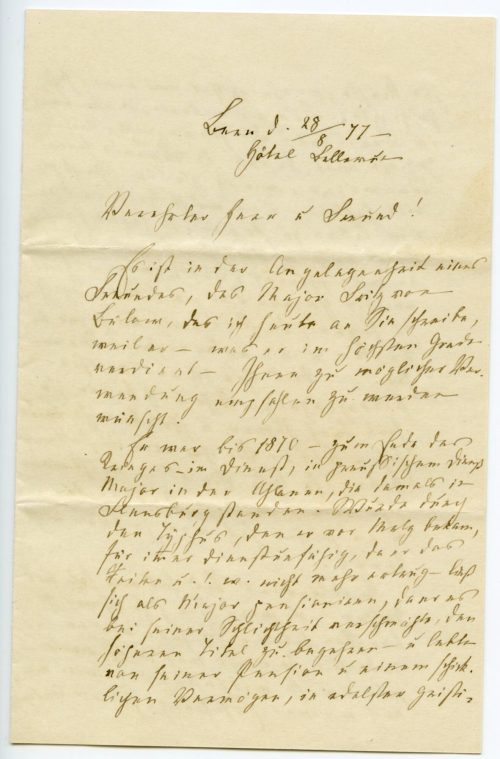 Bern d. 28/8 77 –
Hôtel Bellevue
Verehrter Herr u Freund!
Es ist in der Angelegenheit eines
Freundes, des Major Fritz von
Bülow, daß ich heute an Sie schreibe,
weil er – was er im höchsten Grade
verdient – Ihnen zu möglicher Ver-
wendung empfohlen zu werden
wünscht.
Er war bis 1870 – zum Ende des
Krieges im Dienst, in preußischem Dienst
Major in der Uhlanen, die damals in
Flensburg standen. Wurde durch
den Typhus, den er vor Metz bekam,
für immer dienstunfähig, da er das
Reiten u. s. w. nicht mehr ertrug – ließ
sich als Major pensioniren, denn es
bei seiner Schlichtheit verschmähte, den
höheren Titel zu begehren – u lebte
von seiner Pension u einem schick-
lichen Vermögen, in edelster geisti-